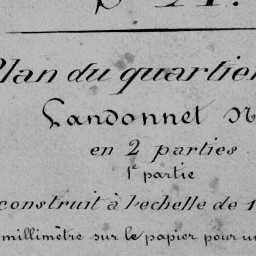 Plan du quartier
Landonnet N
en 2 parties
1e partie
construit à l'echelle de 1
millimètre sur le papier pour un